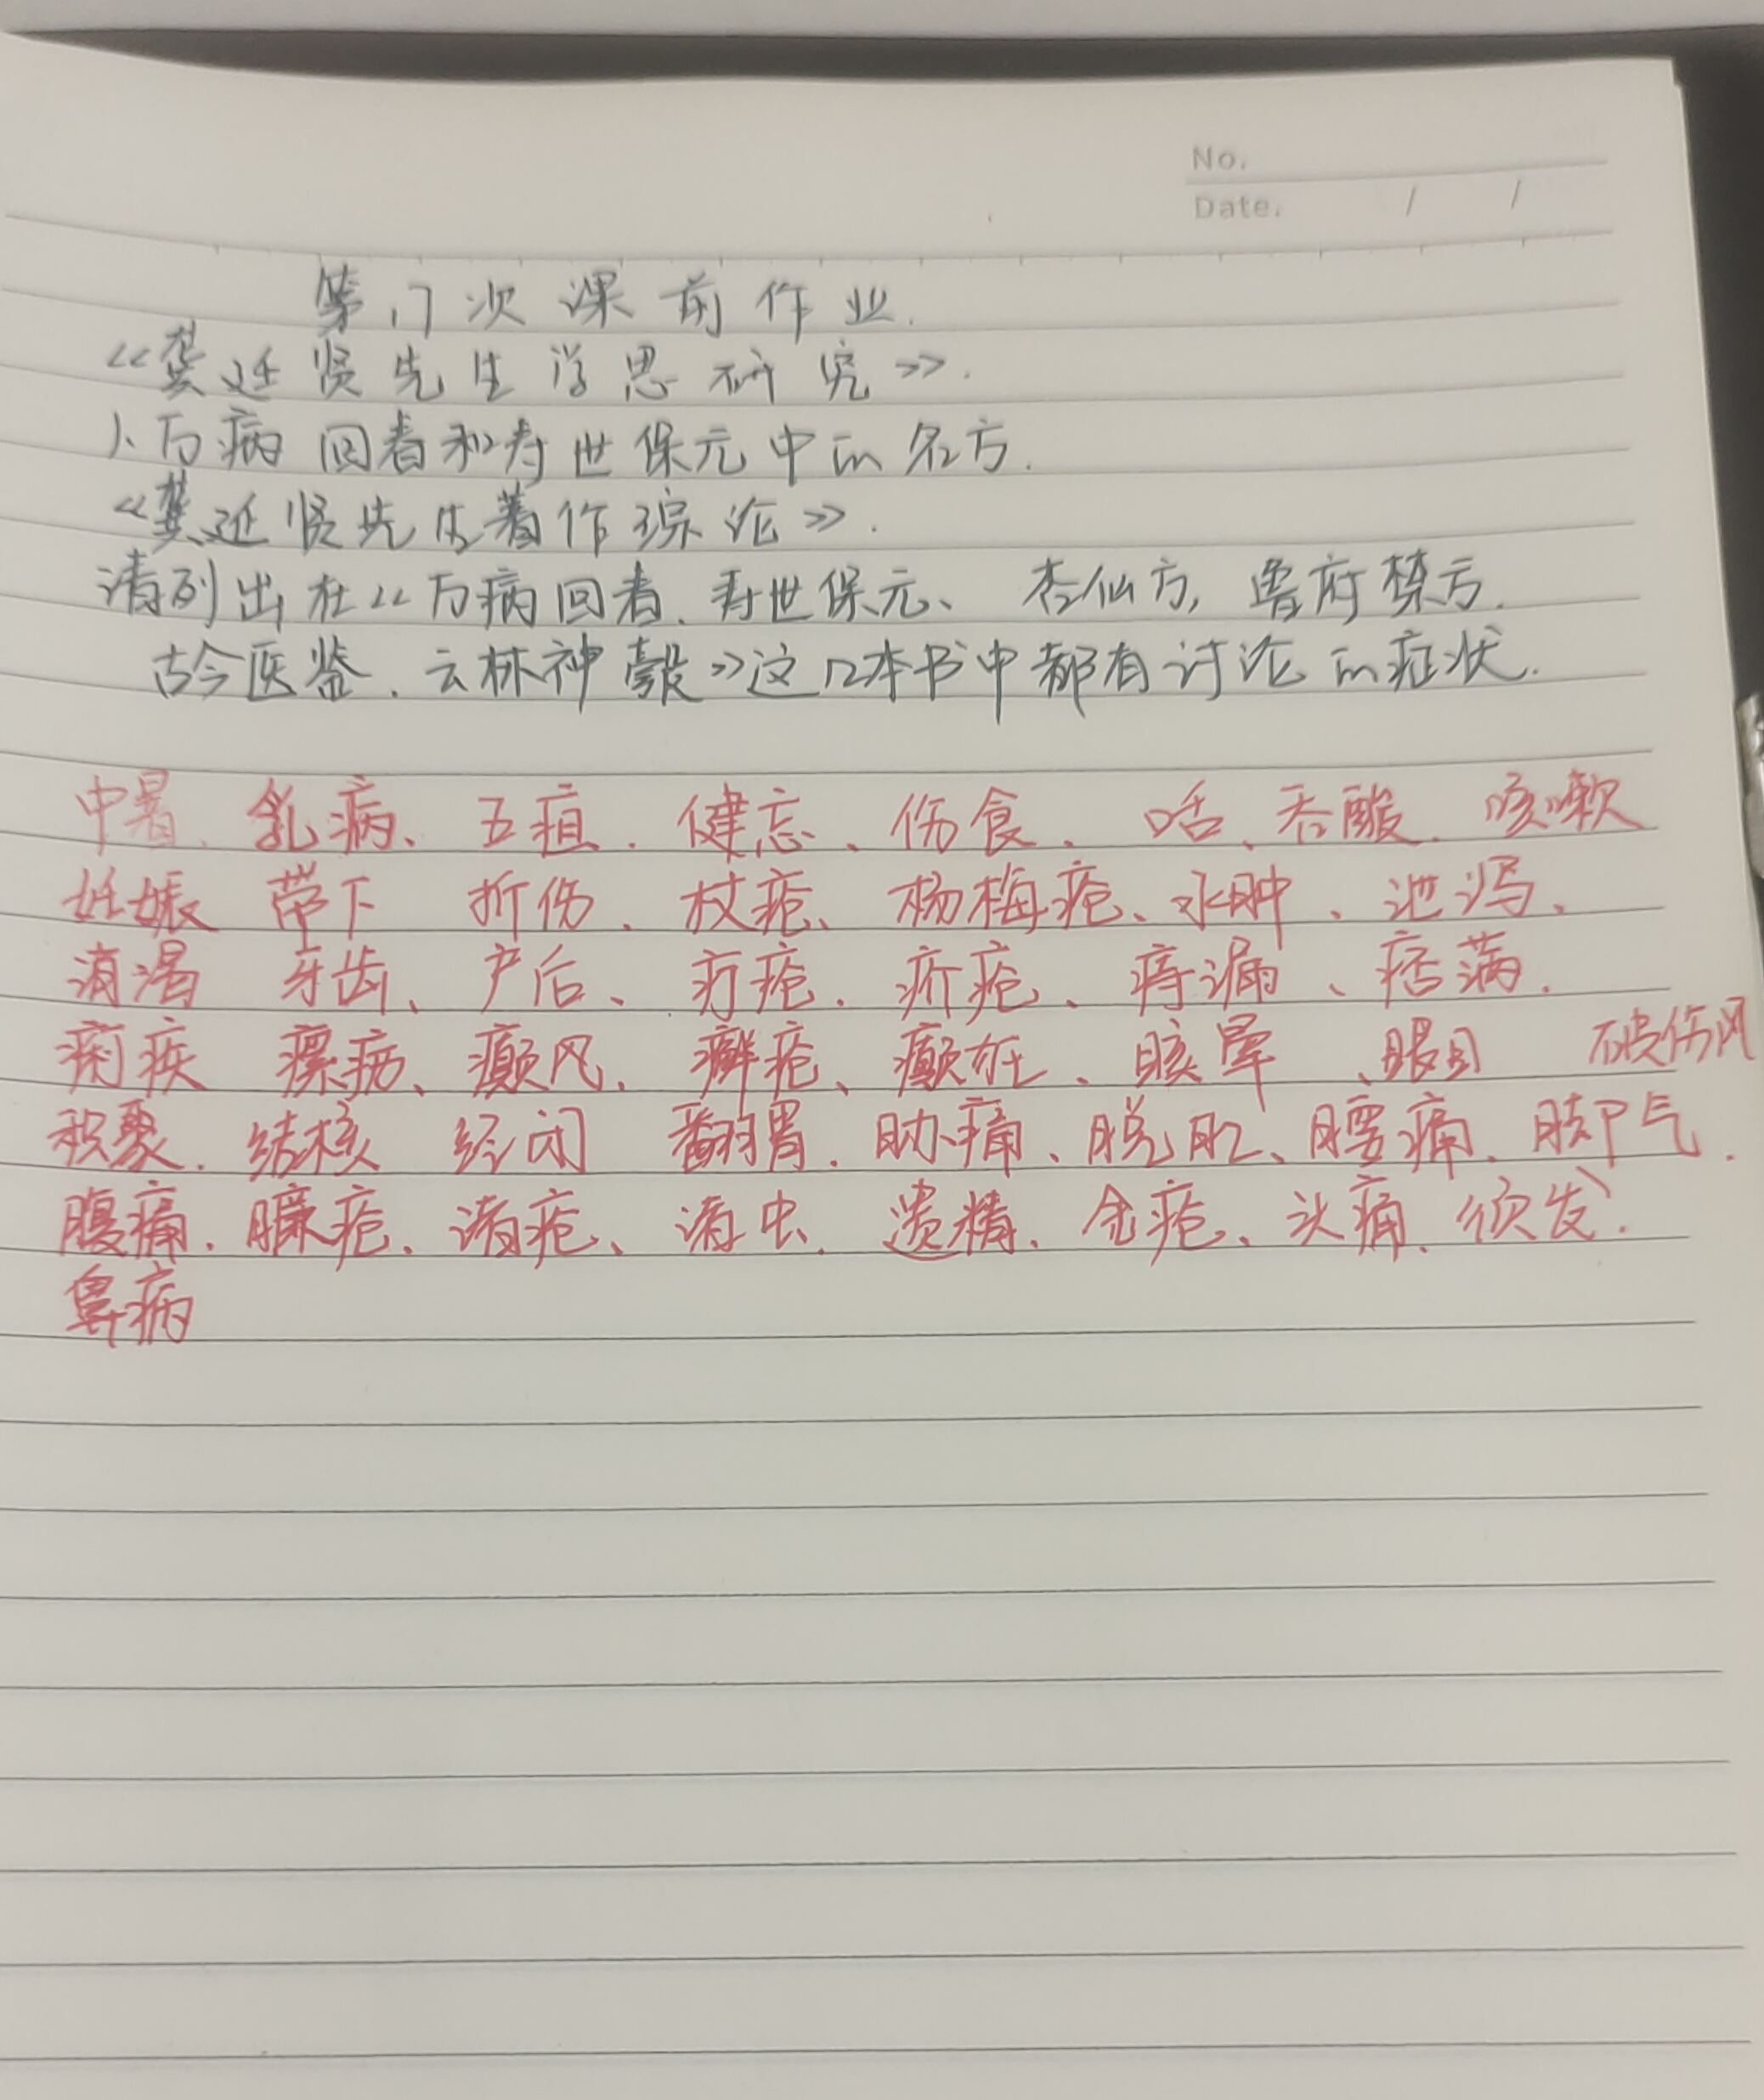 No.
Date. / /
第17次课前作业.
《龚廷贤先生学思研究》.
1、万病回春和寿世保元中的名方.
《龚廷贤先生著作综论》.
请列出在《万病回春、寿世保元、杏仙方,鲁府禁方.
古今医鉴、云林神彀》这几本书中都有讨论的症状.
中暑、乳病、五疸、健忘、伤食、 、吞酸、咳嗽
妊娠 带下 折伤、杖疮、杨梅疮、水肿、泄泻、
消渴 牙齿、产后、疔疮、疥疮、痔漏、痞满.
痢疾 瘰疬、癜风、癣疮、癫狂、眩晕、眼目 破伤风
积聚、结核 经闭 翻胃、胁痛、脱肛、腰痛、脚气.
腹痛、臁疮、诸疮、诸虫、遗精、金疮、头痛、须发.
鼻病